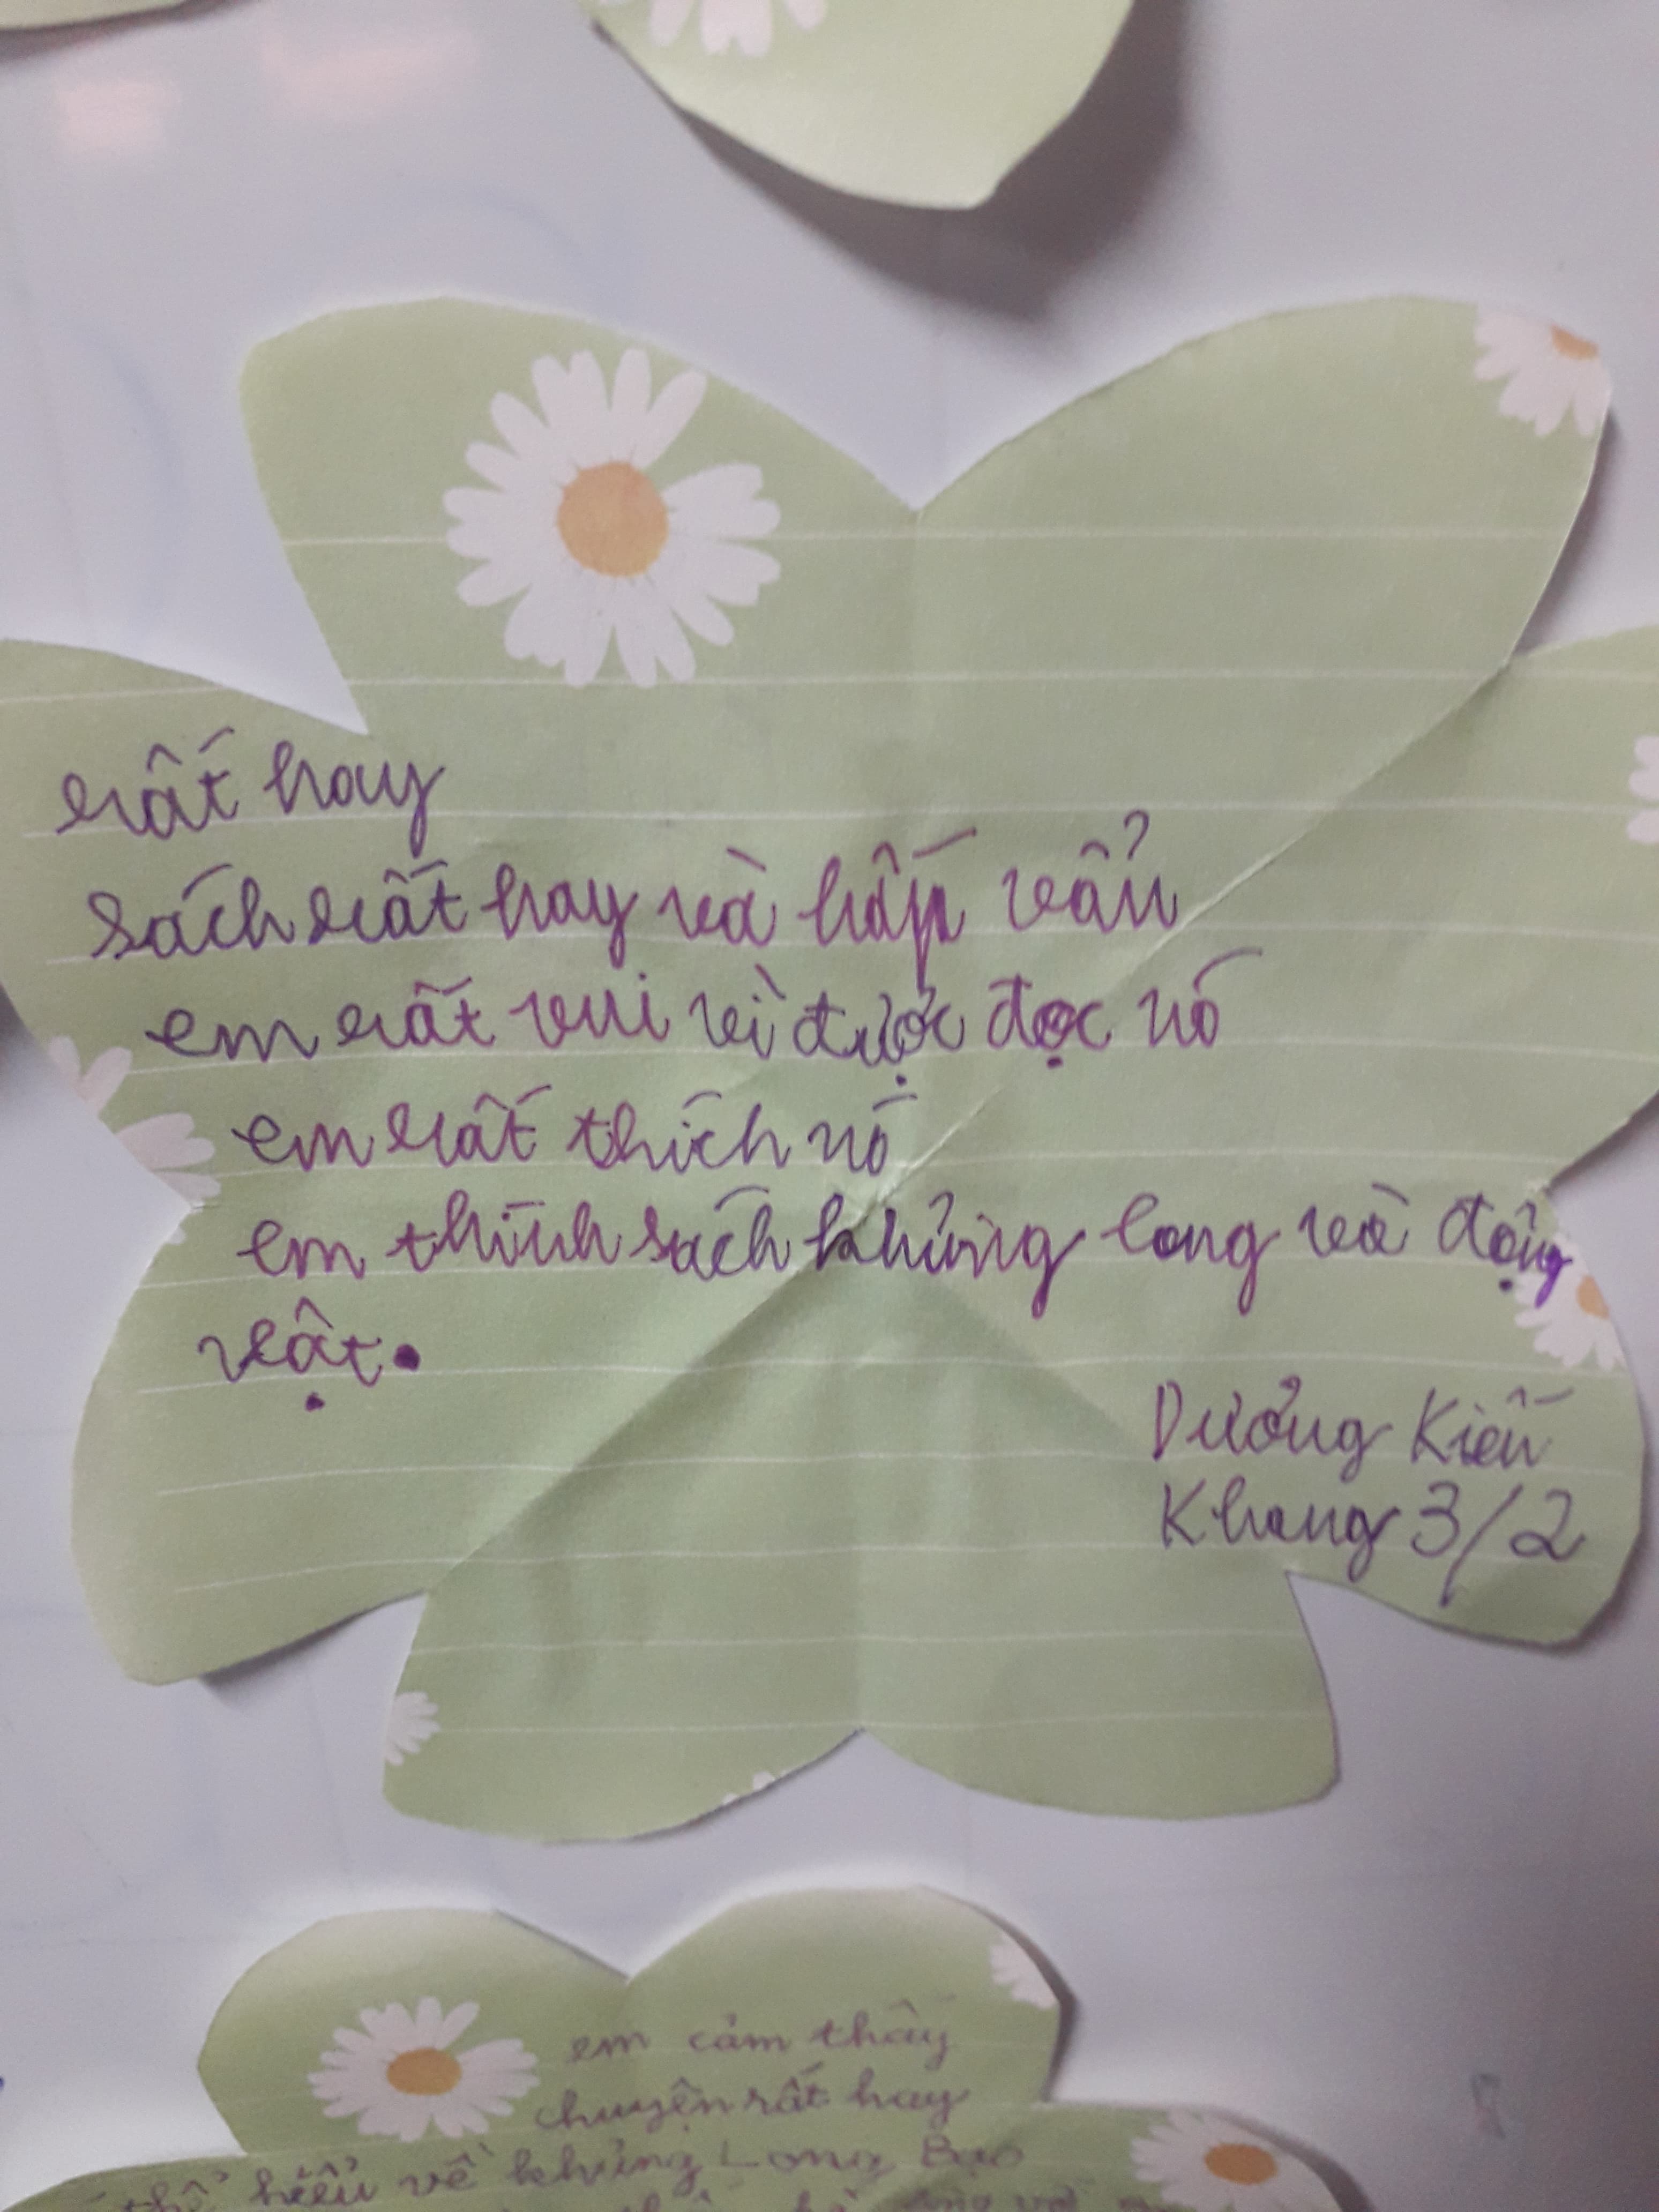 rất hay
sách rất hay và hấp vẩn
em rất vui vì được đọc nó
em rất thích nó
em thính sách khủng long và động
vật.
Dưởng Kiến
Khang 3/2
em cảm thấy
chuyện rất hay
thể hiểu về khủng Long Bạo